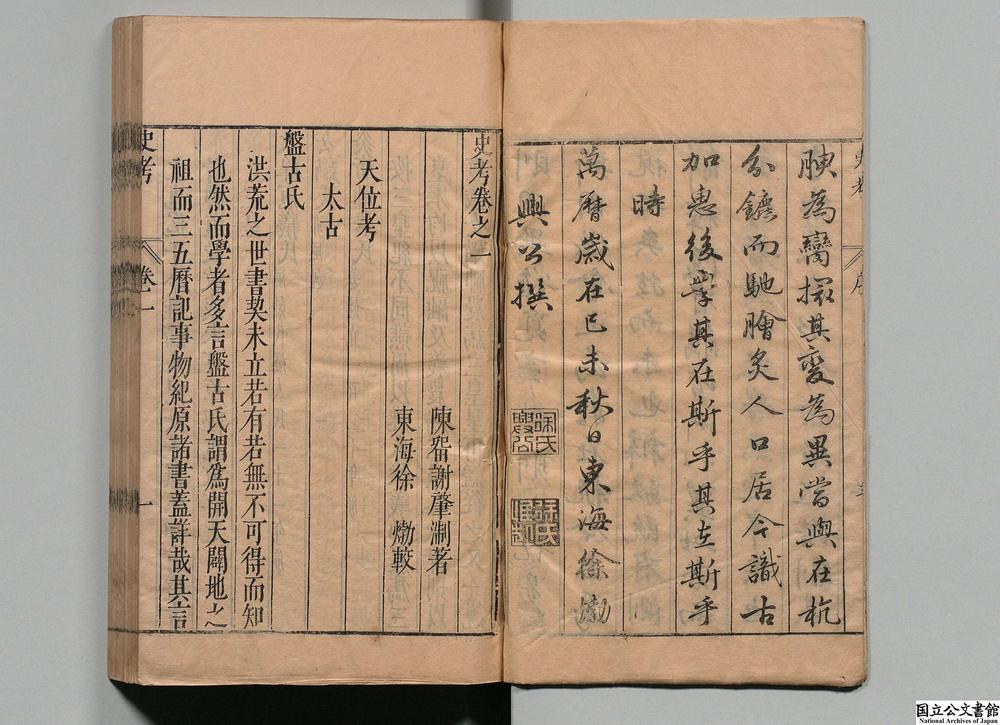 腴為臠掇其變為異當與在杭
分鑣而馳膾炙人口居今識古
加惠後學其在斯乎其在斯乎
時
萬曆歲在己未秋日東海徐𤊹
興公撰
徐氏興公
史考 序
史考卷之一
陳留謝肇淛著
東海徐𤊹較
天位考
太古
盤古氏
洪荒之世書契未立若有若無不可得而知
也然而學者多言盤古氏謂為開天闢地之
祖而三五曆記事物紀原諸書蓋詳哉其言
史考 卷一 一
国立公文書館
National Archives of Japan